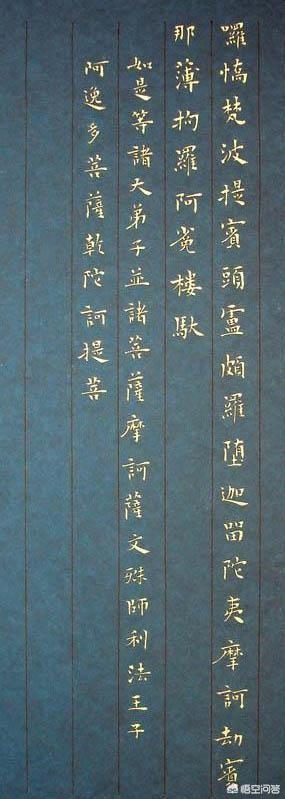 囉憍梵波提賓頭盧頗羅墮迦畱陀夷摩訶劫賓
那薄拘羅阿㝹樓馱
如是等諸大弟子並諸菩薩摩訶薩文殊師利法王子
阿逸多菩薩乾陀訶提菩
悟空问答